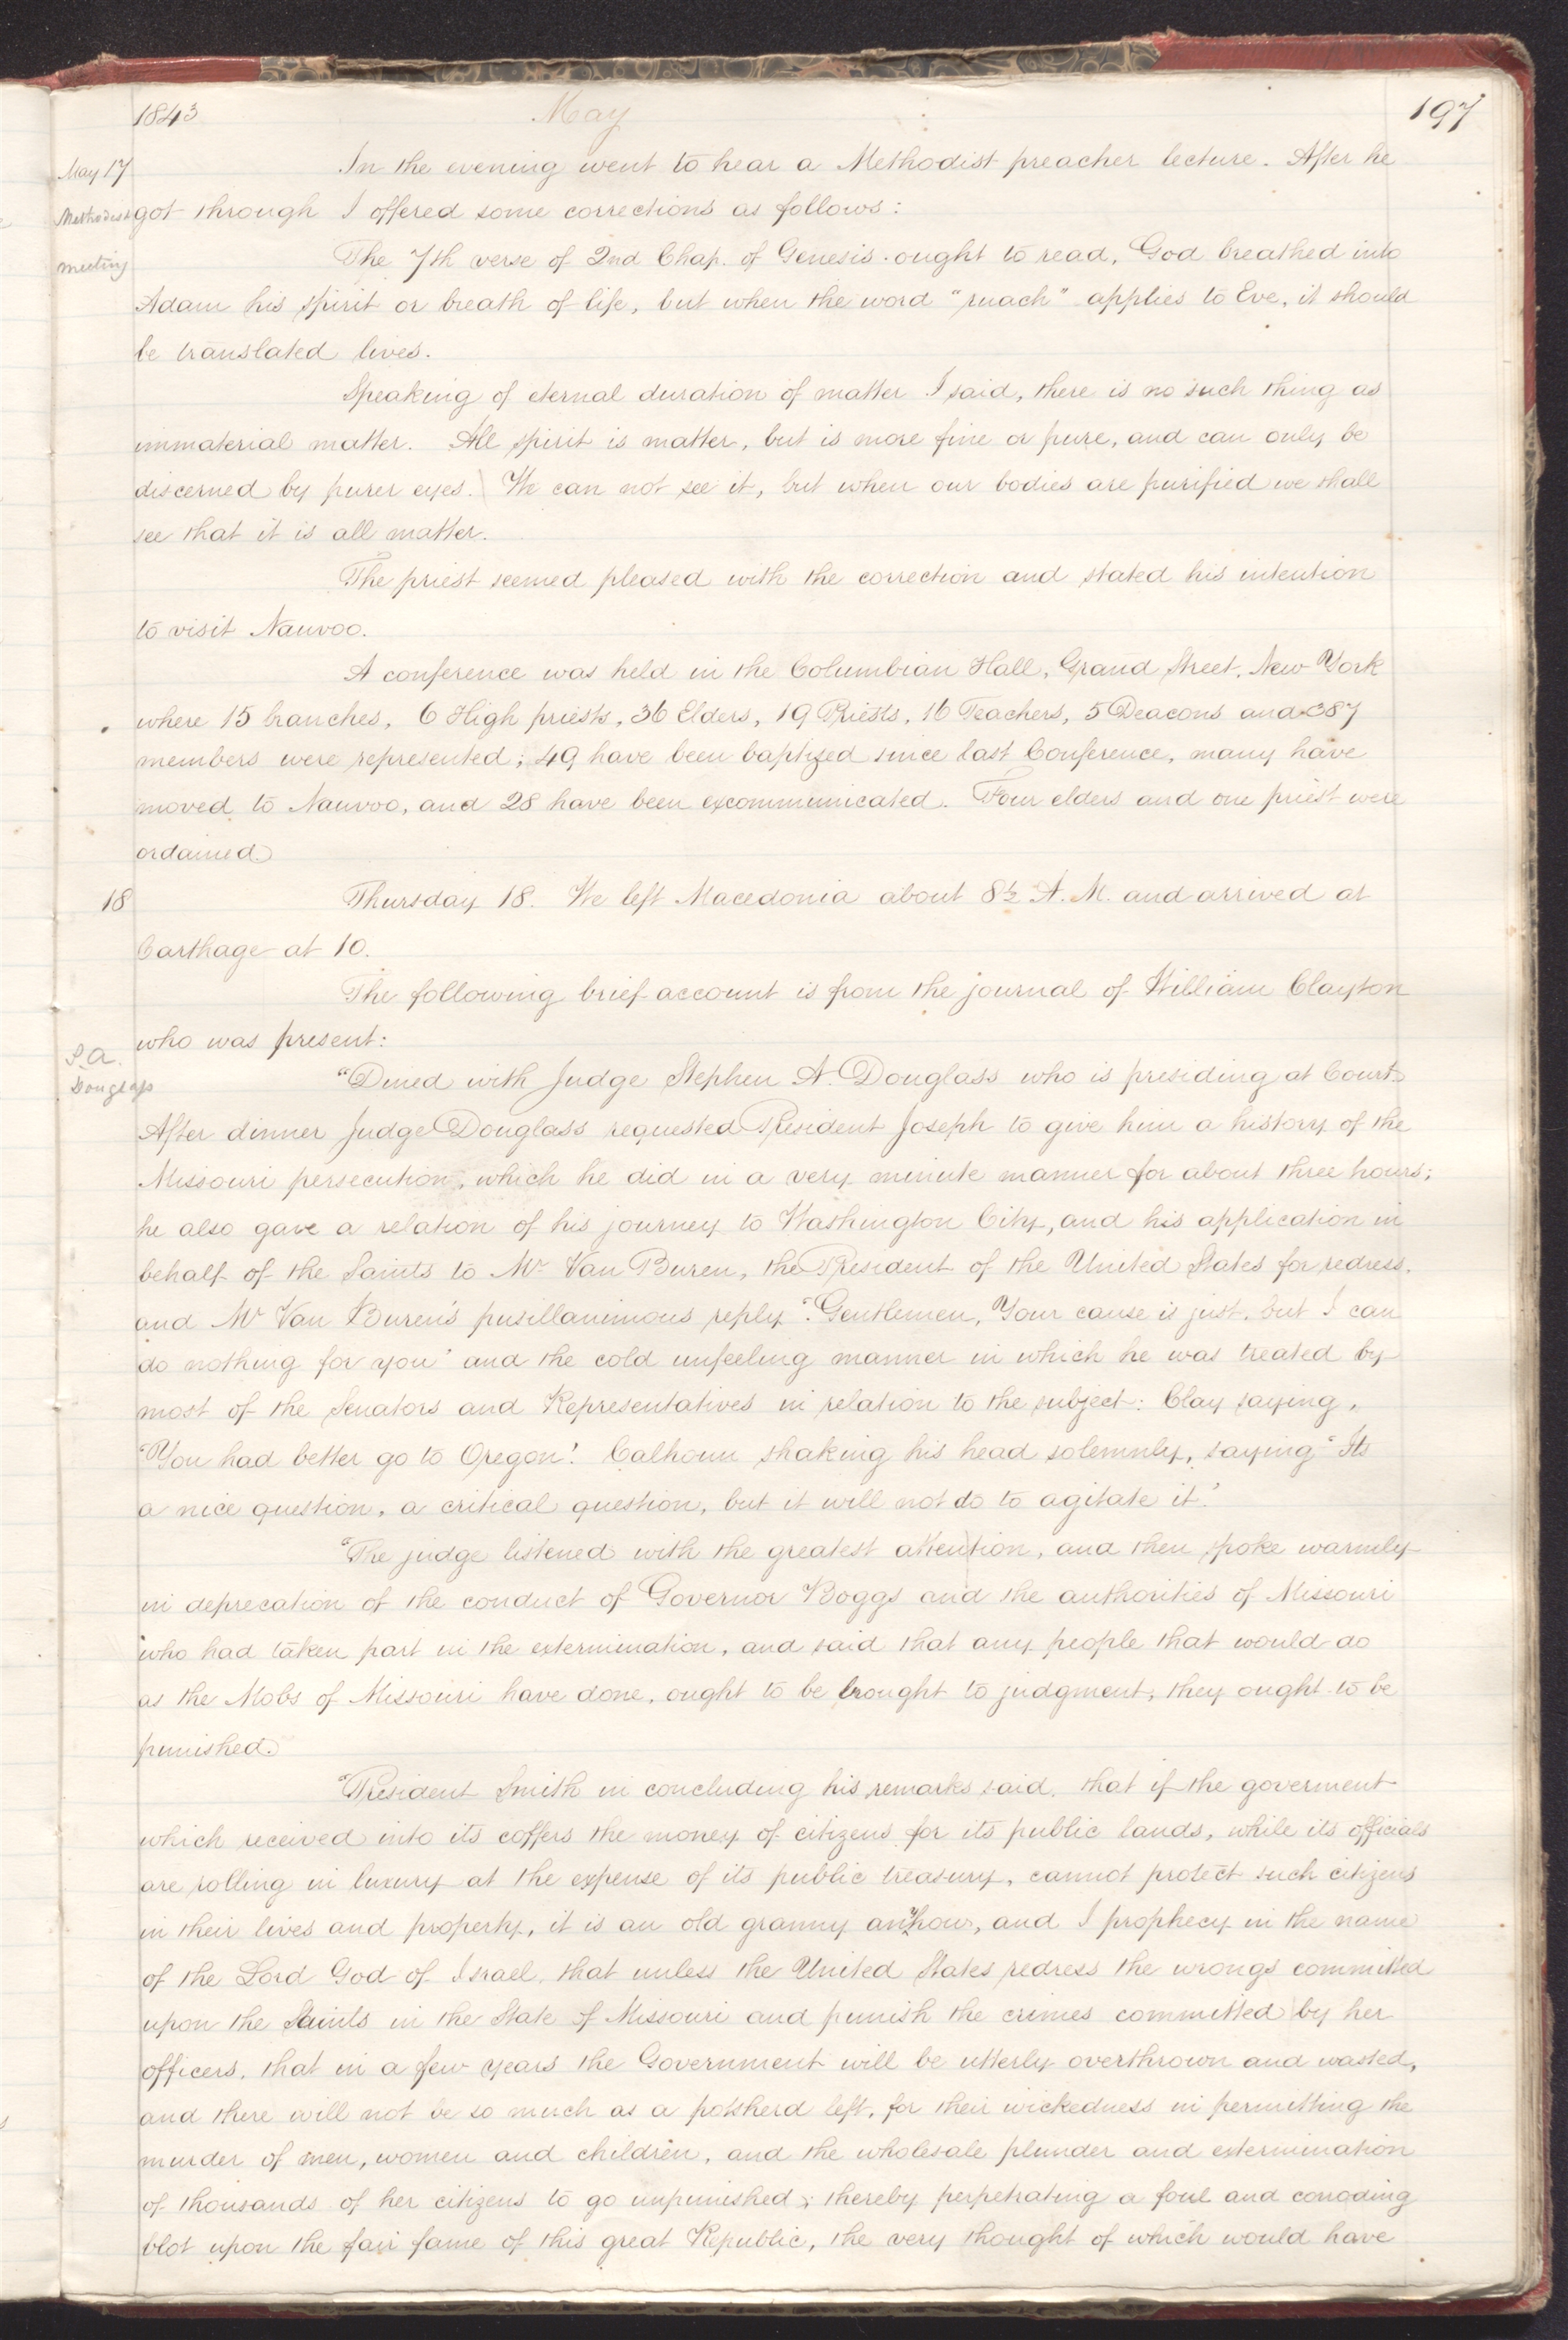 1843 May 197
May 17 In the evening went to hear a Methodist preacher lecture. After he
Methodist got through I offered some corrections as follows:
meeting The 7th verse of 2nd Chap. of Genesis ought to read, God breathed into
Adam his spirit or breath of life, but when the word "ruach" applies to Eve, it should
be translated lives.
Speaking of eternal duration of matter I said, there is no such thing as
immaterial matter. All spirit is matter, but is more fine or pure, and can only be
discerned by purer eyes. We can not see it, but when our bodies are purified we shall
see that it is all matter.
The priest seemed pleased with the correction and stated his intention
to visit Nauvoo.
A conference was held in the Columbian Hall, Grand Street, New York
where 15 branches, 6 High priests, 36 Elders, 19 Priests, 16 Teachers, 5 Deacons and 387
members were represented; 49 have been baptized since last Conference, many have
moved to Nauvoo, and 28 have been excommunicated. Four elders and one priest were
ordained.
18 Thursday 18. We left Macedonia about 8½ A. M. and arrived at
Carthage at 10.
The following brief account is from the journal of William Clayton
who was present:
S. A.
Douglass "Dined with Judge Stephen A. Douglass who is presiding at Court.
After dinner Judge Douglass requested President Joseph to give him a history of the
Missouri persecution, which he did in a very minute manner for about three hours;
he also gave a relation of his journey to Washington City, and his application in
behalf of the Saints to Mr Van Buren, the President of the United States for redress,
and Mr Van Buren's pusillanimous reply "Gentlemen, Your cause is just, but I can
do nothing for you" and the cold unfeeling manner in which he was treated by
most of the Senators and Representatives in relation to the subject: Clay saying,
"You had better go to Oregon! Calhoun shaking his head solemnly, saying "Its
a nice question, a critical question, but it will not do to agitate it."
"The judge listened with the greatest attention, and then spoke warmly
in deprecation of the conduct of Governor Boggs and the authorities of Missouri
who had taken part in the extermination, and said that any people that would do
as the Mobs of Missouri have done, ought to be brought to judgment, they ought to be
punished.
"President Smith in concluding his remarks said, that if the goverment
which received into its coffers the money of citizens for its public lands, while its officials
are rolling in luxury at the expense of its public treasury, cannot protect such citizens
in their lives and property, it is an old granny anyhow, and I prophecy in the name
of the Lord God of Israel, that unless the United States redress the wrongs committed
upon the Saints in the State of Missouri and punish the crimes committed by her
officers, that in a few years the Government will be utterly overthrown and wasted,
and there will not be so much as a potsherd left, for their wickedness in permitting the
murder of men, women and children, and the wholesale plunder and extermination
of thousands of her citizens to go unpunished; thereby perpetrating a foul and corroding
blot upon the fair fame of this great Republic, the very thought of which would have